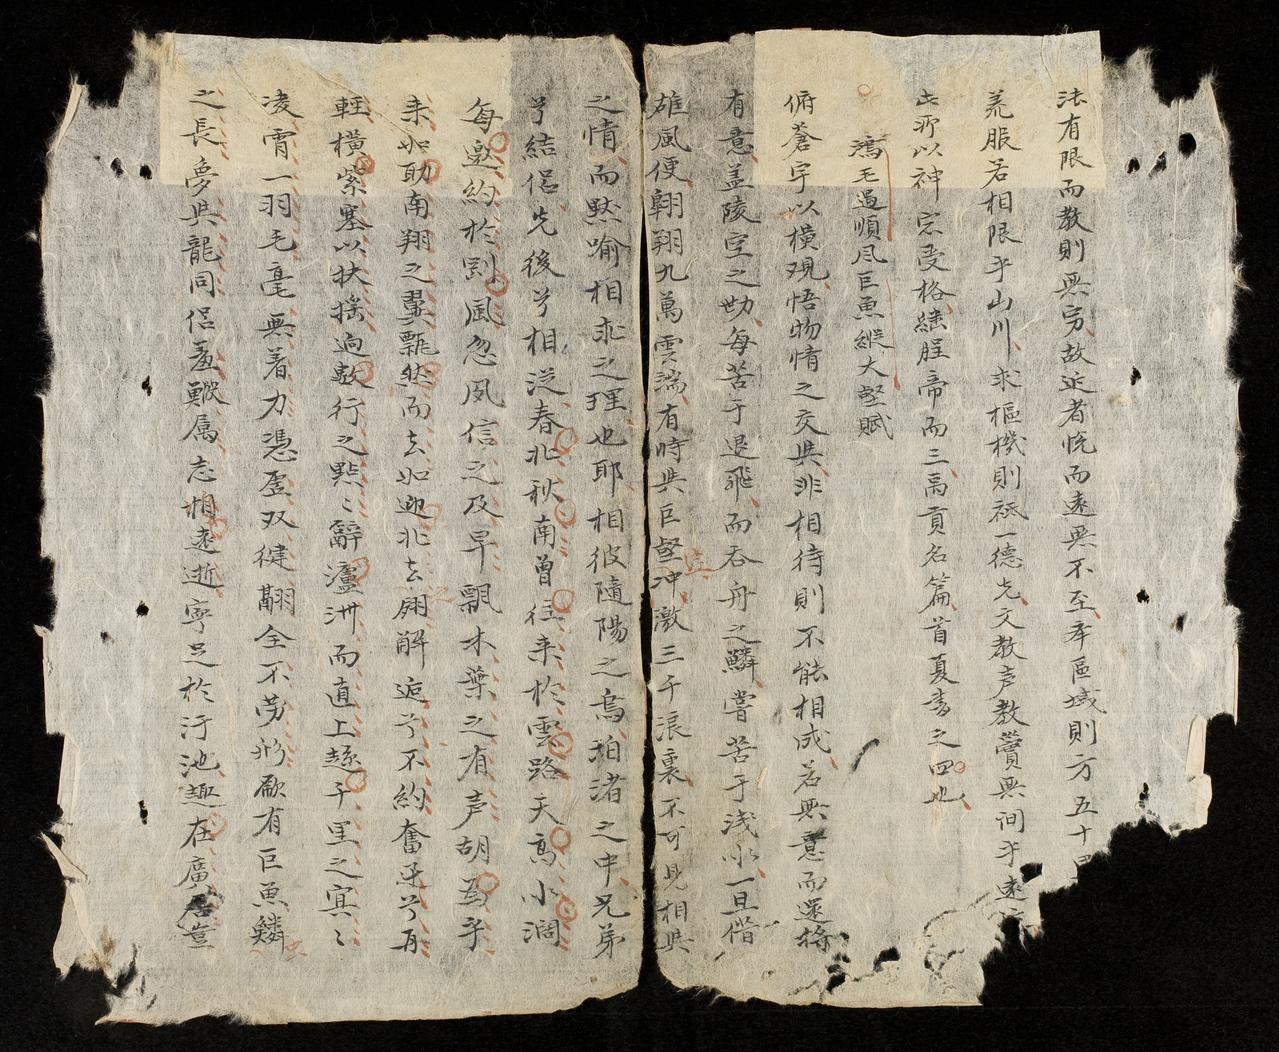 法有限而教則無穷故近者悦而遠無不至率區域則方五十里
荒服若相限乎山川求樞機則祇一德尤文教声教賷無间乎遠
此所以神宗受格繼脭帝而三禹貢名篇首夏書之四也
鴻毛過順风巨魚縱大壑賦
俯蒼宇以橫观悟物情之交與非相待則不能相成若無意而還將
有意盖陵空之勢每苦于退飛而吞舟之鱗嘗苦于浅水一旦借
雄風便翱翔九萬雲端有時與巨壑冲激三千浪裏不可見相與
之情而黙喻相求之理也耶相彼隨陽之鳥泊渚之中兄弟
兮結侣先後兮相從春北秋南曾往来於雲路天高水濶
每邀約於剄風忽夙信之及早飄木葉之有声胡為乎
来如助南翔之翼飄然而去如迎北去翮觧逅兮不約奮乎兮舟
輊橫紫塞以扶搖逈歡行之點〻辭瀘洲而直上越千里之寘〻
凌霄一羽毛毫無着力憑虚双健翮全不劳形厥有巨魚鱗
之長夢與龍同侣羞鰍属志相遠逝寜足於汙池趣在廣居豈